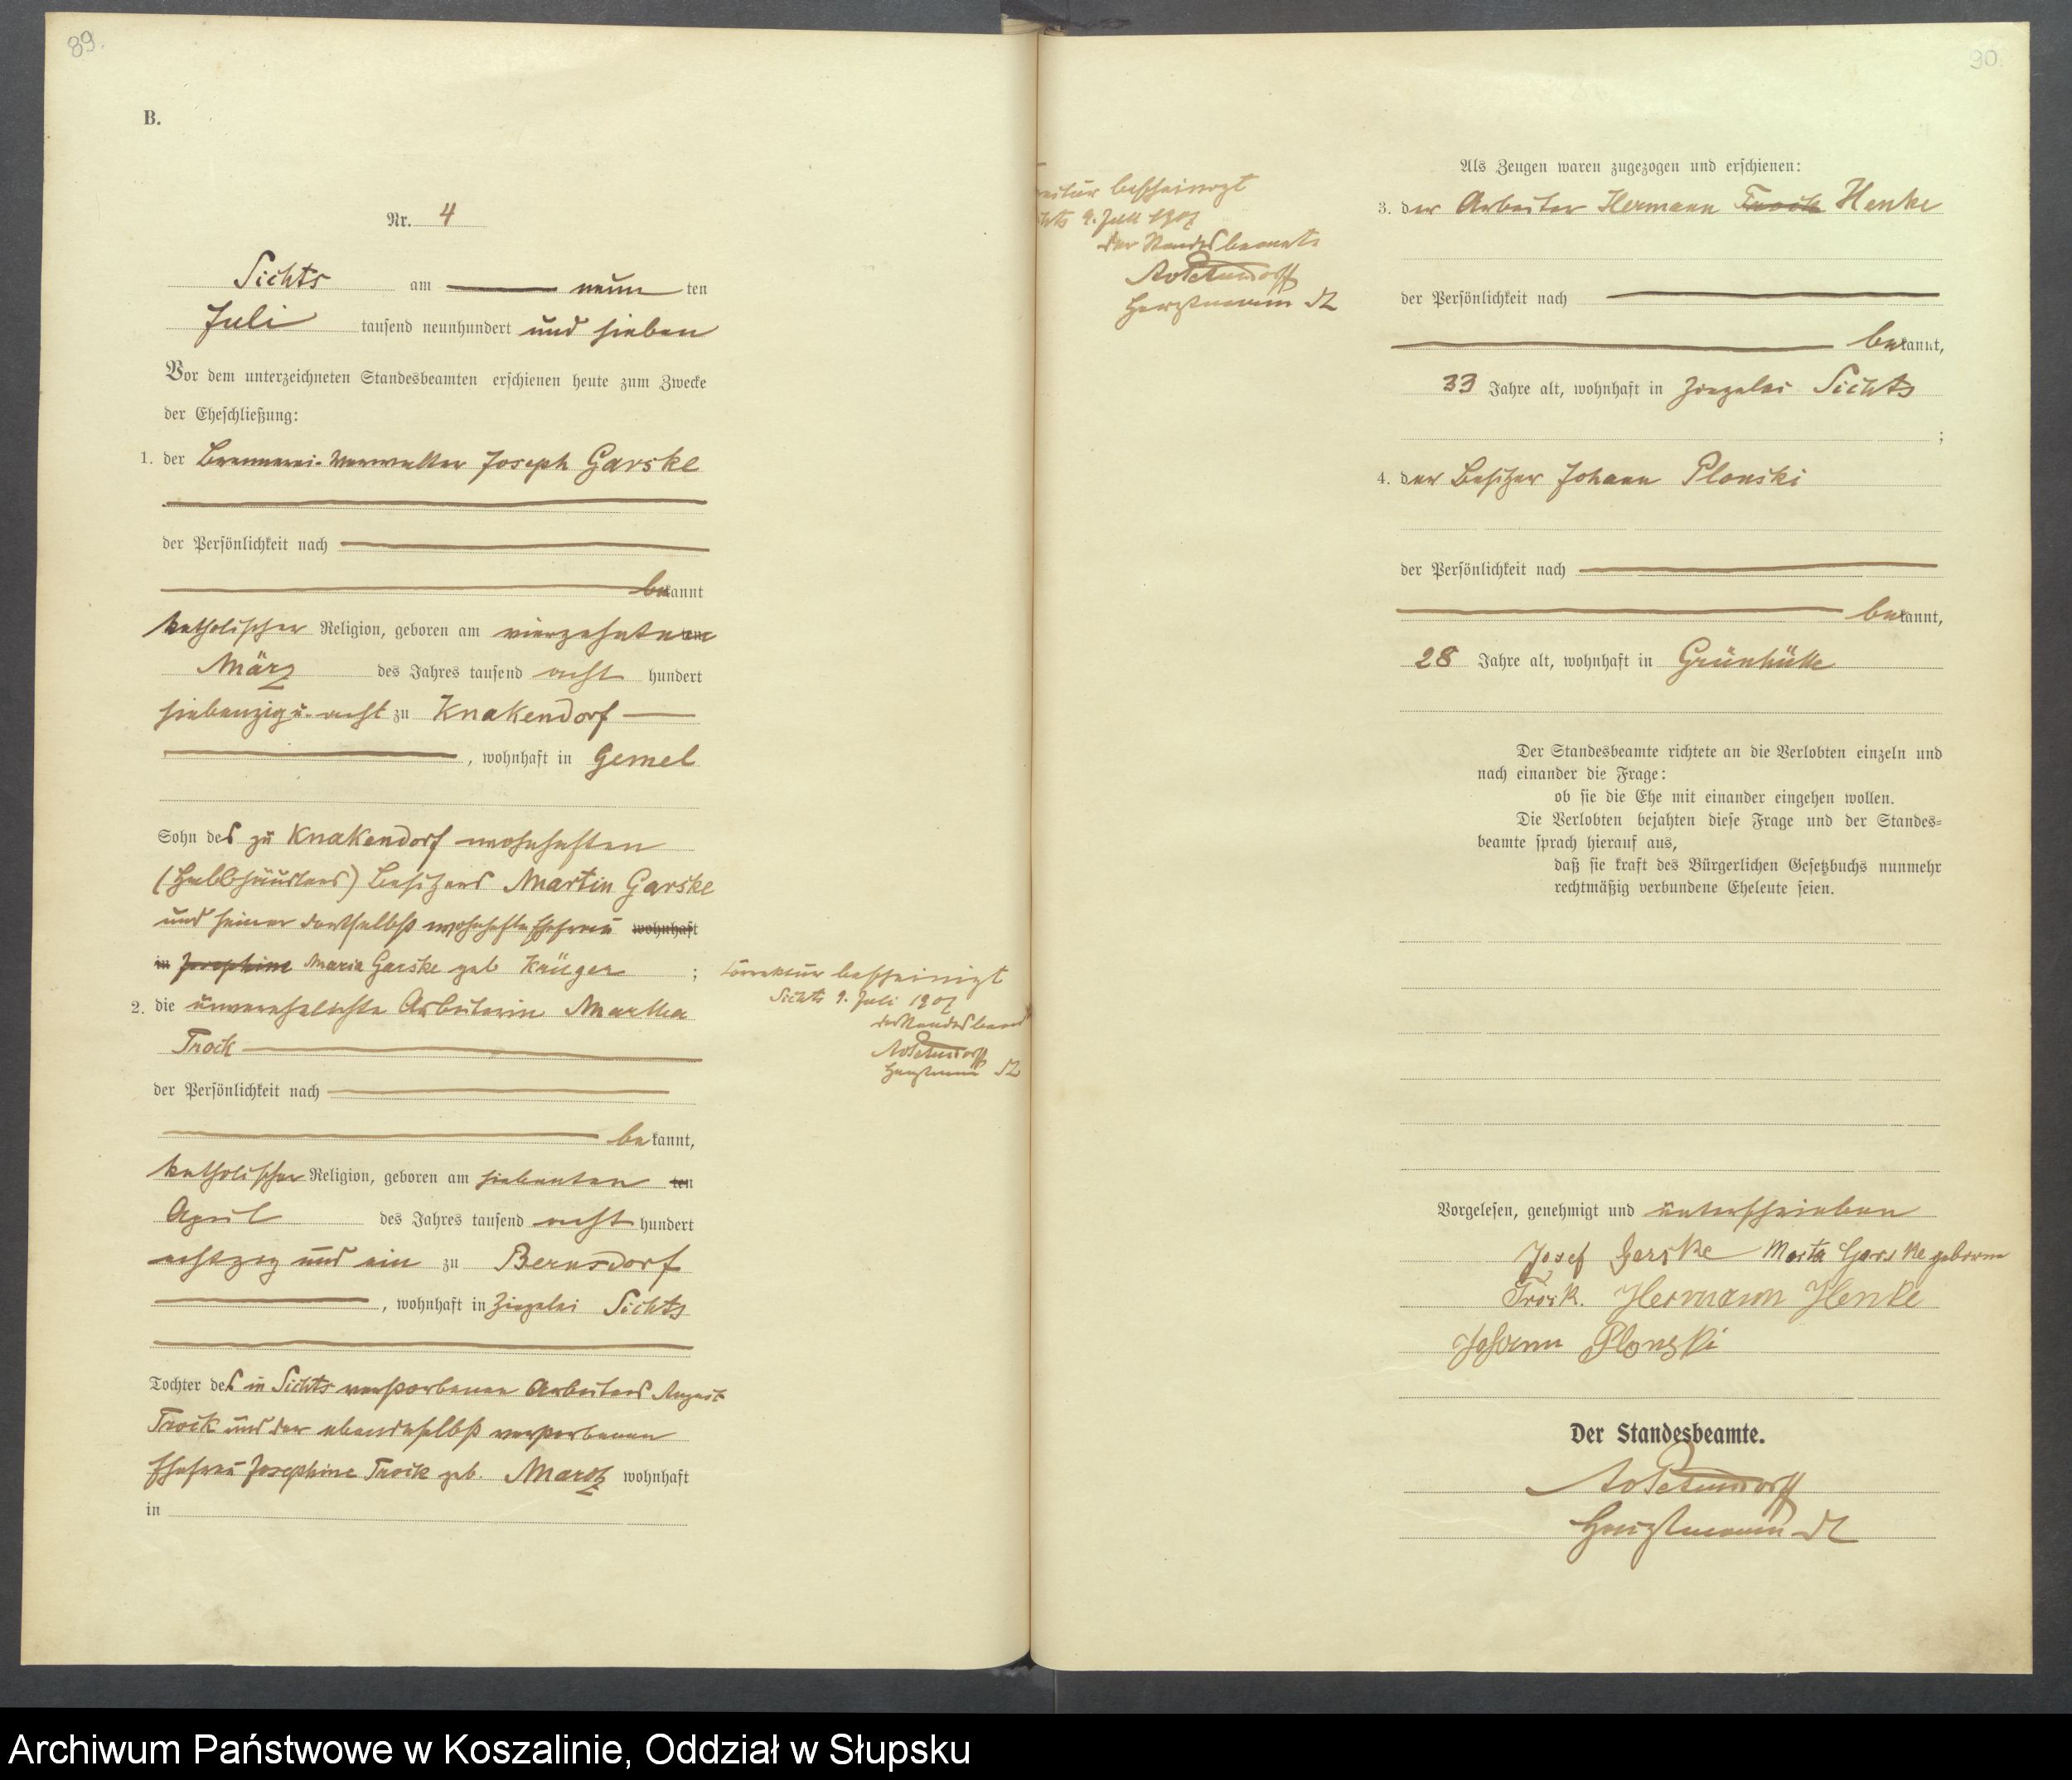 89.
B.
Nr. 4
Sichts am neun ten
Juli tausend neunhundert und sieben
Vor dem unterzeichneten Standesbeamten erschienen heute zum Zwecke
der Eheschließung:
1. der Brennerei-Verwalter Joseph Garske
der Persönlichkeit nach
bekannt
katholischer Religion, geboren am vierzehnten
März des Jahres tausend acht hundert
siebenzig u. acht zu Knakendorf
, wohnhaft in Gemel
Sohn des zu Knakendorf wohnhaften
(Halbhäuslers) Besitzers Martin Garske
und seiner dortselbst wohnhafte Ehefrau wohnhaft
in Josephine Maria Garske geb Krüger ;
2. die unverehelichte Arbeiterin Martha
Trock
der Persönlichkeit nach
bekannt,
katholischer Religion, geboren am siebenten ten
April des Jahres tausend acht hundert
achtzig und ein zu Bernsdorf
, wohnhaft in Ziegelei Sichts
Tochter des in Sichts verstorbenen Arbeiters August
Trock und der ebendaselbst verstorbenen
Ehefrau Josephine Trock geb. wohnhaft
in
Correktur bescheinigt
Sichts 9. Juli 1907
der Standesbeamt
30.
bescheinigt
9. Juli 1907
der Standesbeamte
Als Zeugen waren zugezogen und erschienen:
3. der Arbeiter Hermann Trock Henke
der Persönlichkeit nach
bekannt,
33 Jahre alt, wohnhaft in Ziegelei Sichts
;
4. der Besitzer Johann Plonski
der Persönlichkeit nach
bekannt,
28 Jahre alt, wohnhaft in Grünhütte
Der Standesbeamte richtete an die Verlobten einzeln und
nach einander die Frage:
ob sie die Ehe mit einander eingehen wollen.
Die Verlobten bejahten diese Frage und der Standes=
beamte sprach hierauf aus,
daß sie kraft des Bürgerlichen Gesetzbuchs nunmehr
rechtmäßig verbundene Eheleute seien.
Vorgelesen, genehmigt und unterschrieben
Josef Garske Marta Garske geborene
Trock. Hermann Henke
Johann Plonski
Der Standesbeamte.
Archiwum Państwowe w Koszalinie, Oddział w Słupsku